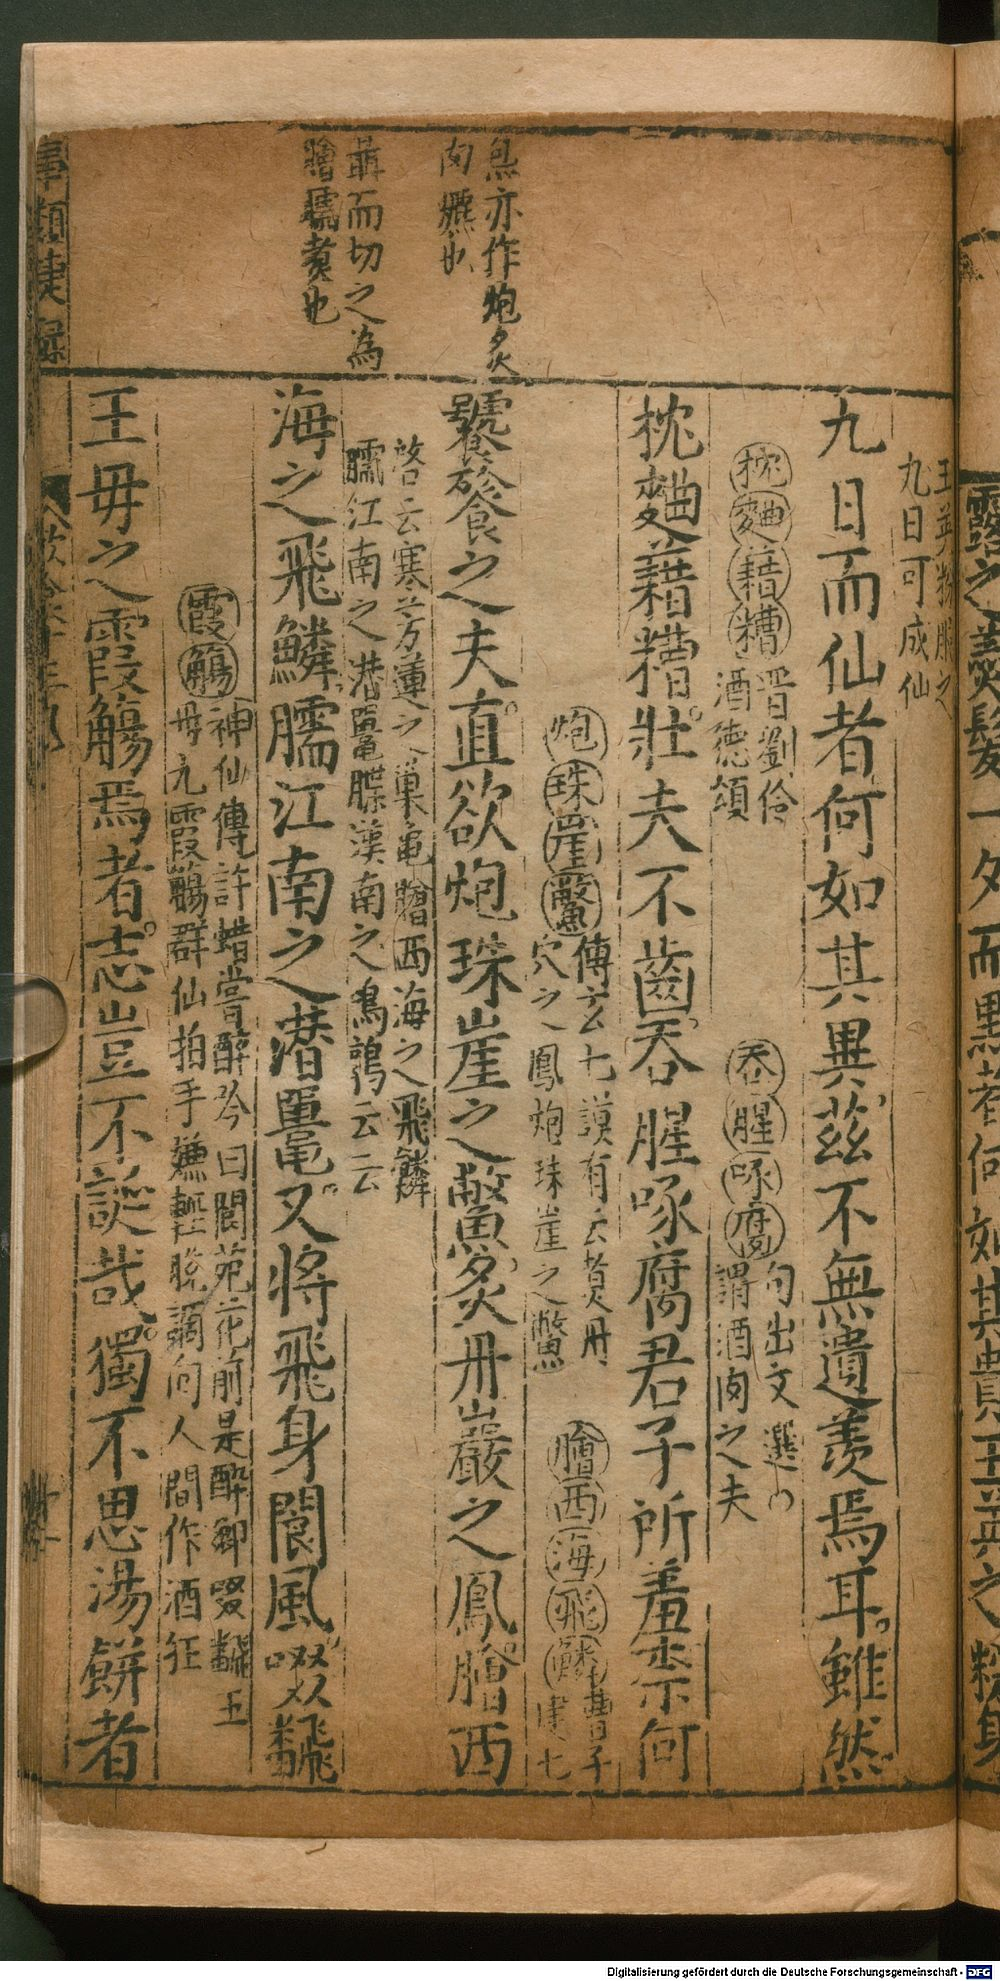 炰亦作炮炙
肉爊也
聶而切之為
膾臑煮也
九日可成仙
九日而仙者何如其異茲不無遺羨焉耳雖然
枕麯藉糟
晋劉伶
酒德頌
吞腥啄腐
句出文選
謂酒肉之夫
枕麯藉糟壯夫不齒吞腥啄腐君子所羞柰何
炮珠崖鱉
傳玄七謨有云煑丹
穴之鳳炮珠崖之鱉
膾西海飛鱗
曹子
建七
饕餮之夫直欲炮珠崖之鱉炙丹巖之鳳膾西
啓云寒芳蓮之巢龜膾西海之飛鱗
臛江南之潜鼉臇漢南之鳴鶉云云
海之飛鱗臑江南之潜鼉又將飛身閬風啜飜
霞觴
神仙傳許蜡嘗醉吟曰閬苑花前是醉鄉啜飜王
母九霞觴群仙拍手嫌輕脫謫向人間作酒狂
王毋之霞觴焉者志豈不誕哉獨不思湯餅者
事類捷錄
露之羹髮一夕而黑者何如其貴玉英之粉身
Digitalisierung gefördert durch die Deutsche Forschungsgemeinschaft - DFG